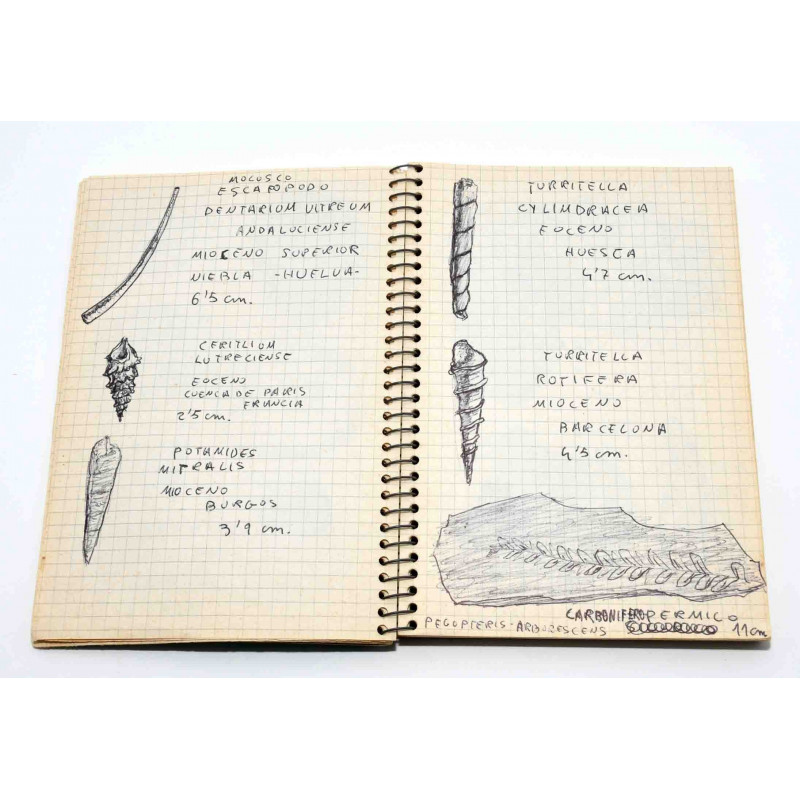 MOLUSCO
ESCAFOPODO
DENTARIUM VITREUM
ANDALUCIENSE
MIOCENO SUPERIOR
NIEBLA -HUELVA-
6'5 cm.
CERITLIUM
LUTRECIENSE
EOCENO
CUENCA DE PARIS
FRANCIA
2'5 cm.
POTAMIDES
MITRALIS
MIOCENO
BURGOS
3'9 cm.
TURRITELLA
CYLINDRACEA
EOCENO
HUESCA
4'7 cm.
TURRITELLA
ROTIFERA
MIOCENO
BARCELONA
4'5 cm.
CARBONIFERO PERMICO
PECOPTERIS-ARBORESCENS 11 cm